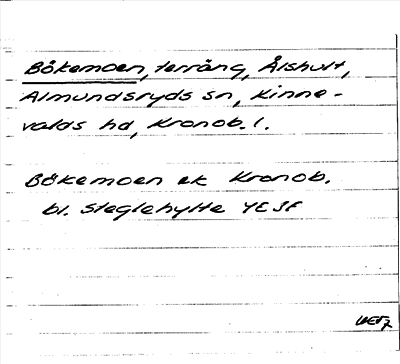 Bökemoen, terräng, Ålshult,
Almundsryds sn, Kinne-
valds hd, Kronob. l.
Bökemoen ek Kronob.
bl. Steglehylte 4E3f